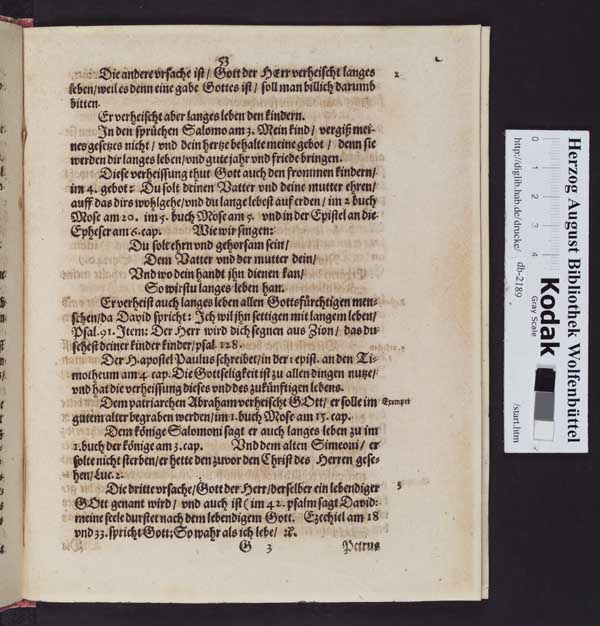 53
Die andere vrsache ist / Gott der HErr verheischt langes 2
leben / weil es denn eine gabe Gottes ist / soll man billich darumb
bitten.
Er verheischt aber langes leben den kindern.
In den sprüchen Salomo am 3. Mein kind / vergiß mei-
nes gesetzes nicht / vnd dein hertze behalte meine gebot / denn sie
werden dir langes leben / vnd gute jahr vnd friede bringen.
Diese verheissung thut Gott auch den frommen kindern /
im 4. gebot: Du solt deinen Vatter vnd deine mutter ehren /
auff das dirs wohlgehe / vnd du lange lebest auf erden / im 2 buch
Mose am 20. im 5. buch Mose am 5. vnd in der Epistel an die
Epheser am 6. cap. Wie wir singen:
Du solt ehrn vnd gehorsam sein /
Dem Vatter vnd der mutter dein /
Vnd wo dein handt ihn dienen kan /
So wirstu langes leben han.
Er verheist auch langes leben allen Gottsfürchtigen men-
schen / da David spricht: Ich wil ihn settigen mit langem leben /
Psal. 91. Item: Der Herr wird dich segnen aus Zion / das du
sehest deiner kinder kinder / psal. 128.
Der H. apostel Paulus schreibet / in der 1 epist. an den Ti-
motheum am 4 cap. Die Gottseligkeit ist zu allen dingen nutze /
vnd hat die verheissung dieses vnd des zukünftigen lebens.
Dem patriarchen Abraham verheischt GOtt / er solle im Exempel
gutem alter begraben werden / im 1. buch Mose am 15. cap.
Dem könige Salomoni sagt er auch langes leben zu im
1. buch der könige am 3. cap. Vnd dem alten Simeoni / er
solte nicht sterben / er hette denn zuvor den Christ des Herren gese-
hen / Luc. 2.
Die dritte vrsache / Gott der Herr / derselber ein lebendiger 3
GOtt genant wird / vnd auch ist (im 42. psalm sagt David:
meine seele durstet nach dem lebendigem Gott. Ezechiel am 18
vnd 33. spricht Gott: So wahr als ich lebe / ꝛc.
G 3 Petrus
Herzog August Bibliothek Wolfenbüttel
http://diglib.hab.de/drucke/ db-2189 /start.htm
0 1 2 3 4
Kodak
Gray Scale